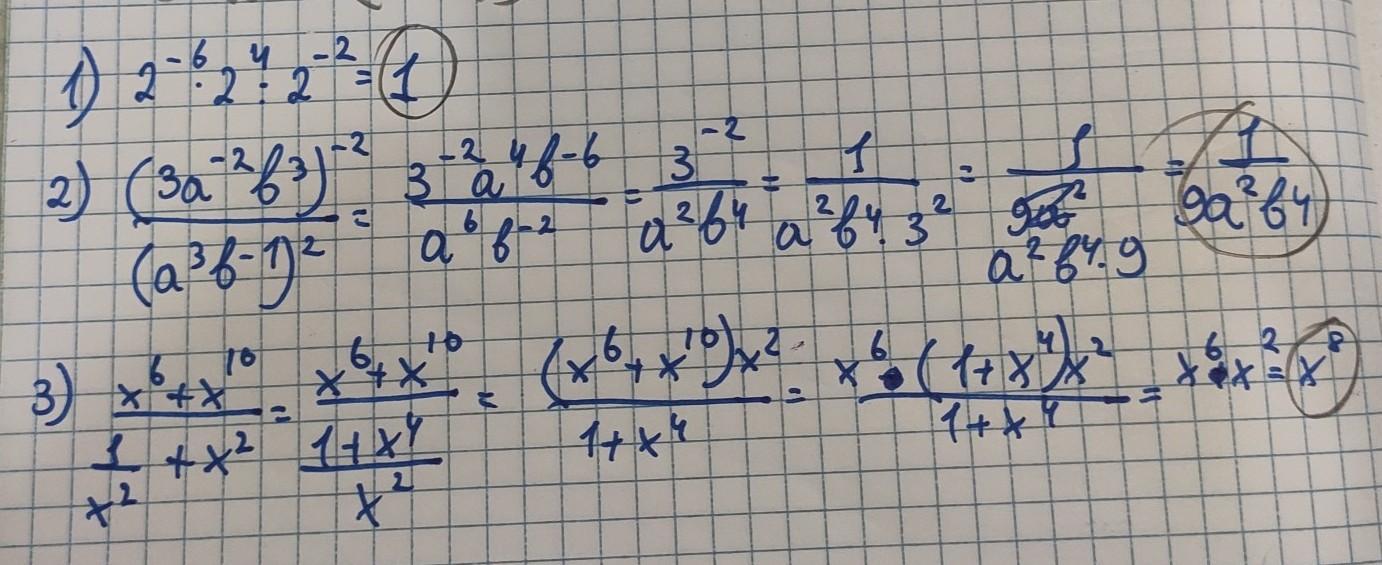 1) 2⁻⁶ · 2⁴ : 2⁻² = 1
2) (3a⁻²b³)⁻² / (a³b⁻¹)² = 3⁻²a⁴b⁻⁶ / a⁶b⁻² = 3⁻² / a²b⁴ = 1 / a²b⁴·3² = 1 / a²b⁴·9 = 1 / 9a²b⁴
3) x⁶+x¹⁰ / (1/x² + x²) = x⁶+x¹⁰ / ((1+x⁴)/x²) = (x⁶+x¹⁰)x² / 1+x⁴ = x⁶·(1+x⁴)x² / 1+x⁴ = x⁶·x² = x⁸